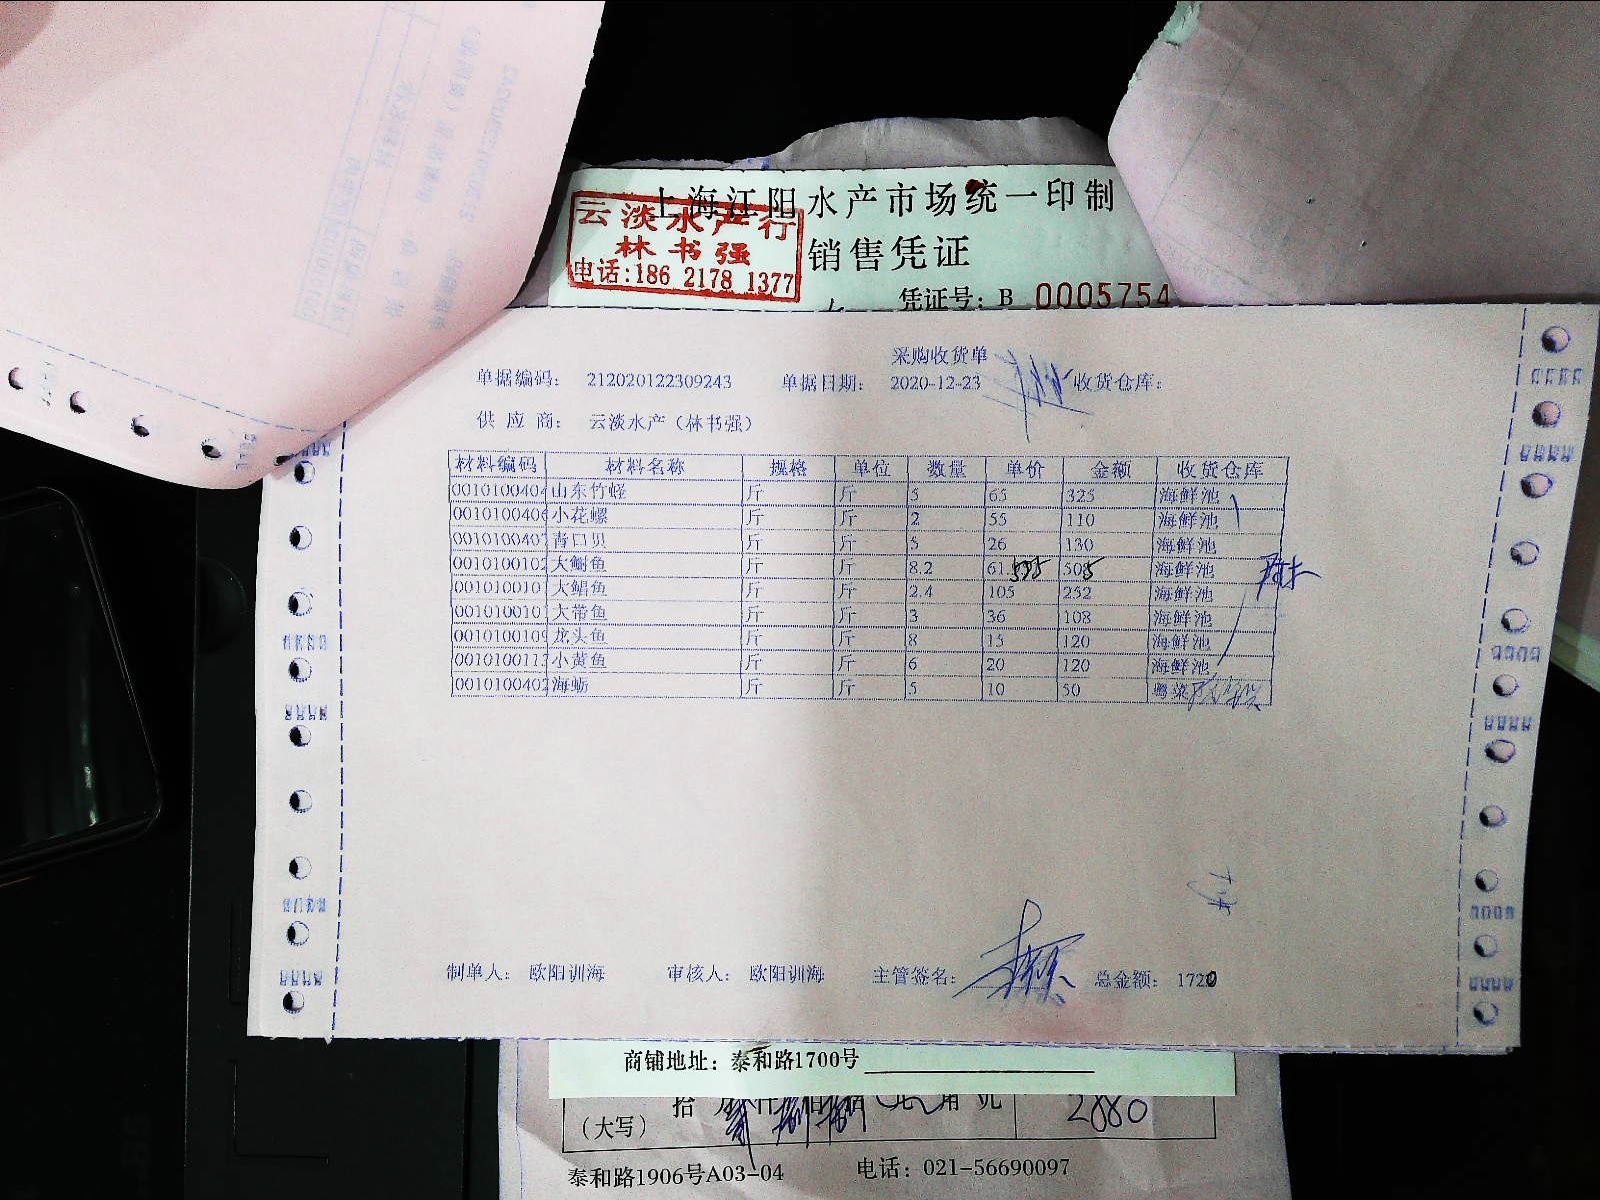 上海江阳水产市场统一印制
云淡水产行
林书强
电话:186 2178 1377
销售凭证
凭证号: B 0005754
采购收货单
单据编码: 212020122309243 单据日期: 2020-12-23 收货仓库:
供应商: 云淡水产（林书强）
材料编码 材料名称 规格 单位 数量 单价 金额 收货仓库
0010100404 山东竹蛏 斤 斤 5 65 325 海鲜池
001010040 小花螺 斤 斤 2 55 110 海鲜池
001010040 青口贝 斤 斤 5 26 130 海鲜池
0010100102 大鮰鱼 斤 斤 8.2 61. 505 海鲜池
001010010 大鲳鱼 斤 斤 2.4 105 252 海鲜池
001010010 大带鱼 斤 斤 3 36 108 海鲜池
0010100109 龙头鱼 斤 斤 8 15 120 海鲜池
001010011 小黄鱼 斤 斤 6 20 120 海鲜池
0010100402 海蛎 斤 斤 5 10 50 粤菜
制单人: 欧阳训海 审核人: 欧阳训海 主管签名: 总金额: 1720
商铺地址: 泰和路1700号
拾 万 仟 佰 拾 元 角 2880
(大写)
泰和路1906号A03-04 电话: 021-56690097